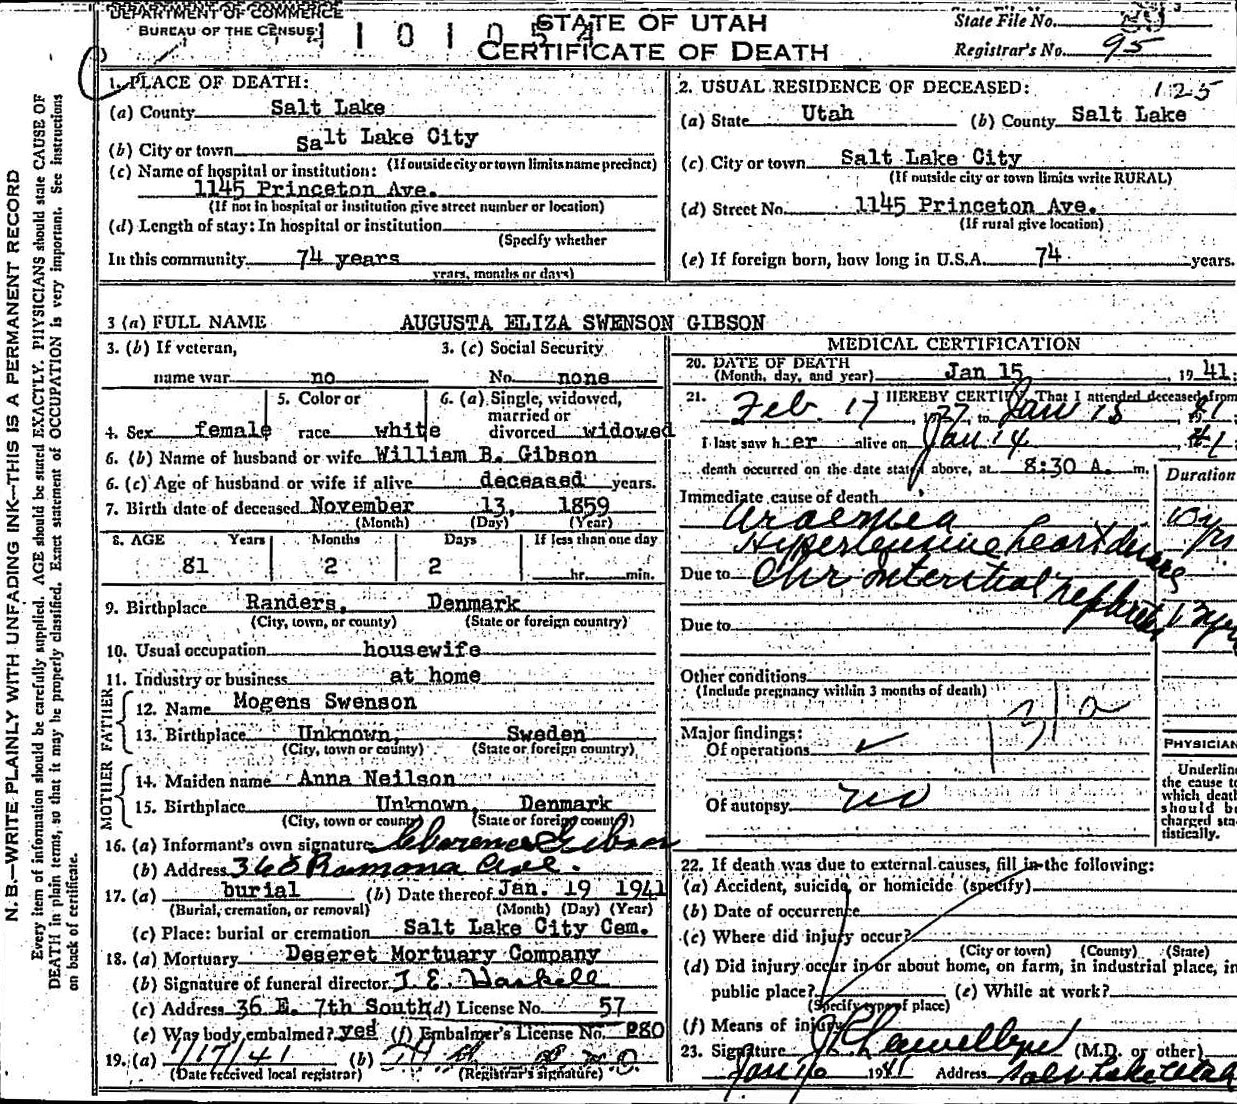 DEPARTMENT OF COMMERCE
BUREAU OF THE CENSUS
STATE OF UTAH
CERTIFICATE OF DEATH
State File No.
Registrar's No. 95
N. B.—WRITE PLAINLY WITH UNFADING INK—THIS IS A PERMANENT RECORD
Every item of information should be carefully supplied. AGE should be stated EXACTLY. PHYSICIANS should state CAUSE OF
DEATH in plain terms, so that it may be properly classified. Exact statement of OCCUPATION is very important. See Instructions
on back of certificate.
1. PLACE OF DEATH:
(a) County Salt Lake
(b) City or town Salt Lake City
(If outside city or town limits name precinct)
(c) Name of hospital or institution:
1145 Princeton Ave.
(If not in hospital or institution give street number or location)
(d) Length of stay: In hospital or institution
(Specify whether
In this community 74 years
years, months or days)
2. USUAL RESIDENCE OF DECEASED: 125
(a) State Utah (b) County Salt Lake
(c) City or town Salt Lake City
(If outside city or town limits write RURAL)
(d) Street No. 1145 Princeton Ave.
(If rural give location)
(e) If foreign born, how long in U.S.A. 74 years.
3 (a) FULL NAME AUGUSTA ELIZA SWENSON GIBSON
3. (b) If veteran, 3. (c) Social Security
name war no No. none
5. Color or 6. (a) Single, widowed,
married or
4. Sex female race white divorced widowed
6. (b) Name of husband or wife William B. Gibson
6. (c) Age of husband or wife if alive deceased years.
7. Birth date of deceased November 13, 1859
(Month) (Day) (Year)
8. AGE Years Months Days If less than one day
81 2 2 hr. min.
9. Birthplace Randers, Denmark
(City, town, or county) (State or foreign country)
10. Usual occupation housewife
11. Industry or business at home
FATHER
12. Name Mogens Swenson
13. Birthplace Unknown, Sweden
(City, town or county) (State or foreign country)
MOTHER
14. Maiden name Anna Neilson
15. Birthplace Unknown, Denmark
(City, town or county) (State or foreign country)
16. (a) Informant's own signature Clarence Gibson
(b) Address 368 Ramona Ave.
17. (a) burial (b) Date thereof Jan. 19 1941
(Burial, cremation, or removal) (Month) (Day) (Year)
(c) Place: burial or cremation Salt Lake City Cem.
18. (a) Mortuary Deseret Mortuary Company
(b) Signature of funeral director J. E. Haskell
(c) Address 36 E. 7th South (d) License No. 57
(e) Was body embalmed? yes (f) Embalmer's License No. 280
19. (a) 1/17/41 (b)
(Date received local registrar) (Registrar's signature)
MEDICAL CERTIFICATION
20. DATE OF DEATH
(Month, day, and year) Jan 15, 1941:
21. I HEREBY CERTIFY, That I attended deceased from
Feb. 17 1937, to Jan 15 41
I last saw her alive on Jan 14 41
death occurred on the date stated above, at 8:30 A. m.
Duration
Immediate cause of death
Uraemia
Hypertensive heart disease 10 yrs.
Due to Chr interstitial nephritis 12 yrs
Due to
Other conditions
(Include pregnancy within 3 months of death)
131a
Major findings:
Of operations
Of autopsy no
PHYSICIAN
Underline
the cause to
which death
should be
charged sta-
tistically.
22. If death was due to external causes, fill in the following:
(a) Accident, suicide, or homicide (specify)
(b) Date of occurrence
(c) Where did injury occur?
(City or town) (County) (State)
(d) Did injury occur in or about home, on farm, in industrial place, in
public place? (e) While at work?
(Specify type of place)
(f) Means of injury
23. Signature (M.D. or other)
Jan 16 1941 Address Salt Lake Utah